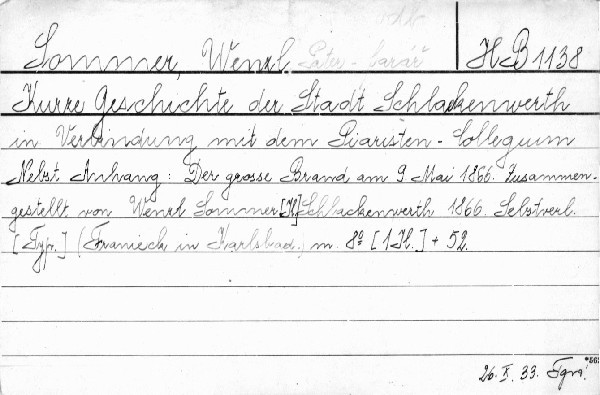 Sommer, Wenzl Páter - farář HB 1138
Kurze Geschichte der Stadt Schlackenwerth
in Verbindung mit dem Piaristen-Collegium
Nebst Anhang: Der grosse Brand am 9 Mai 1866. Zusammen-
gestellt von Wenzl Sommer [K] Schlackenwerth 1866. Selbstverl.
[Typ.] (Franieck in Karlsbad.) m. 8º [1 K.] + 52.
*56
26. X. 33.